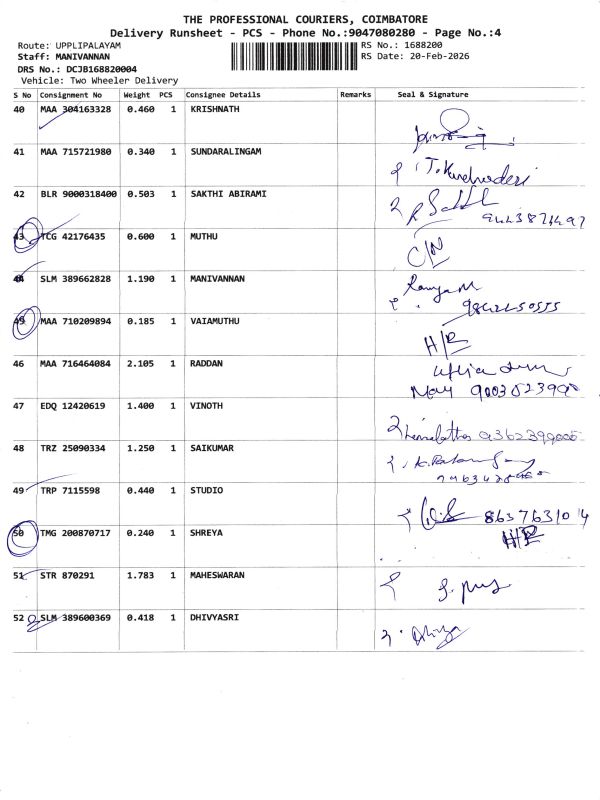 THE PROFESSIONAL COURIERS, COIMBATORE
Delivery Runsheet - PCS - Phone No.:9047080280 - Page No.:4
Route: UPPLIPALAYAM RS No.: 1688200
Staff: MANIVANNAN RS Date: 20-Feb-2026
DRS No.: DCJB168820004
Vehicle: Two Wheeler Delivery
S No Consignment No Weight PCS Consignee Details Remarks Seal & Signature
40 MAA 304163328 0.460 1 KRISHNATH
41 MAA 715721980 0.340 1 SUNDARALINGAM
42 BLR 9000318400 0.503 1 SAKTHI ABIRAMI
43 TCG 42176435 0.600 1 MUTHU
C/N
44 SLM 389662828 1.190 1 MANIVANNAN
Ramya M
45 MAA 710209894 0.185 1 VAIAMUTHU
H/R
46 MAA 716464084 2.105 1 RADDAN
47 EDQ 12420619 1.400 1 VINOTH
48 TRZ 25090334 1.250 1 SAIKUMAR
49 TRP 7115598 0.440 1 STUDIO
8637631014
50 TMG 200870717 0.240 1 SHREYA
H/R
51 STR 870291 1.783 1 MAHESWARAN
52 SLM 389600369 0.418 1 DHIVYASRI
Dhivya